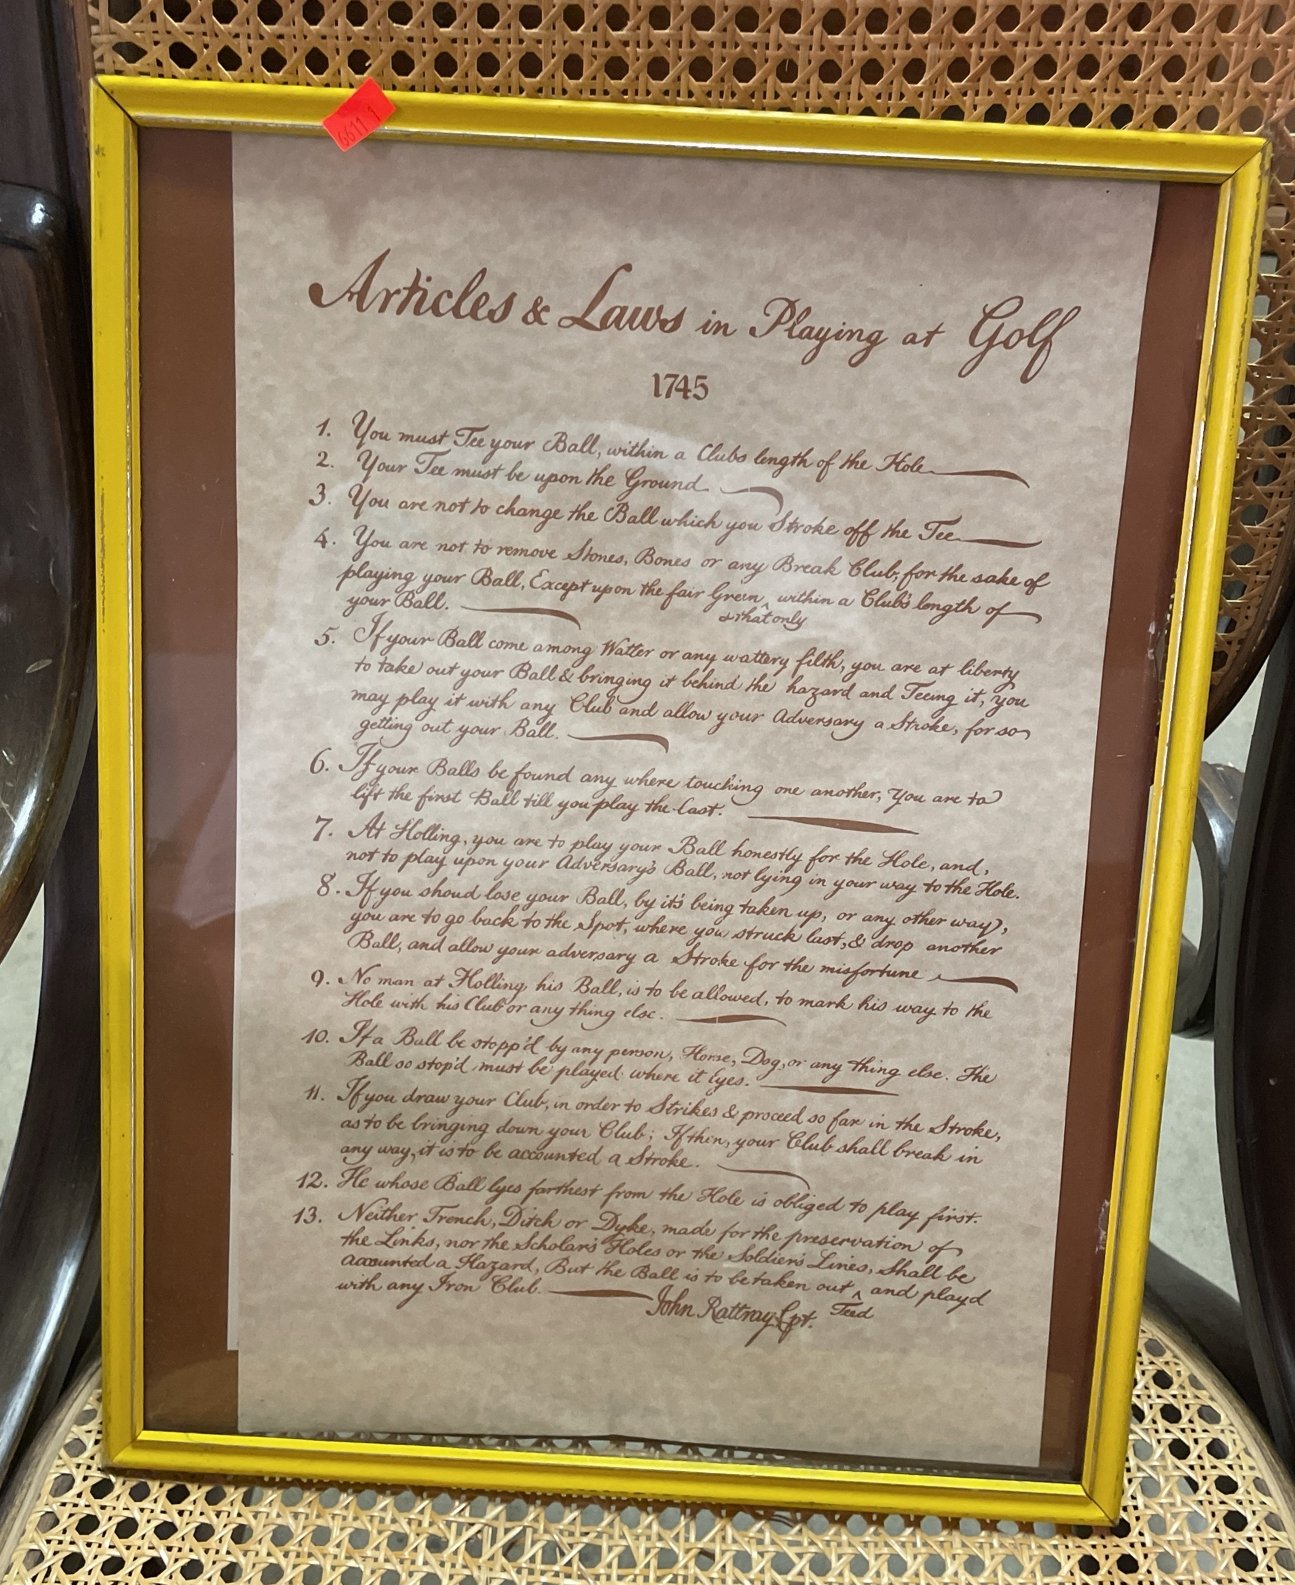 6611 1
Articles & Laws in Playing at Golf
1745
1. You must Tee your Ball, within a Clubs length of the Hole
2. Your Tee must be upon the Ground
3. You are not to change the Ball which you Stroke off the Tee
4. You are not to remove Stones, Bones or any Break Club, for the sake of
playing your Ball, Except upon the fair Green, ^ within a Club's length of
& that only
your Ball.
5. If your Ball come among Watter or any wattery filth, you are at liberty
to take out your Ball & bringing it behind the hazard and Teeing it, you
may play it with any Club and allow your Adversary a Stroke, for so
getting out your Ball.
6. If your Balls be found any where touching one another, You are to
lift the first Ball till you play the last.
7. At Holling, you are to play your Ball honestly for the Hole, and,
not to play upon your Adversary's Ball, not lying in your way to the Hole.
8. If you shoud lose your Ball, by it's being taken up, or any other way,
you are to go back to the Spot, where you struck last, & drop another
Ball, and allow your adversary a Stroke for the misfortune
9. No man at Holling his Ball, is to be allowed, to mark his way to the
Hole with his Club or any thing else.
10. If a Ball be stopp'd by any person, Horse, Dog, or any thing else. The
Ball so stop'd must be played where it lyes.
11. If you draw your Club, in order to Strikes & proceed so far in the Stroke,
as to be bringing down your Club; If then, your Club shall break in
any way, it is to be accounted a Stroke.
12. He whose Ball lyes farthest from the Hole is obliged to play first.
13. Neither Trench, Ditch or Dyke, made for the preservation of
the Links, nor the Scholar's Holes or the Soldier's Lines, Shall be
accounted a Hazard, But the Ball is to be taken out ^ and play'd
Teed
with any Iron Club.
John Rattray Cpt.